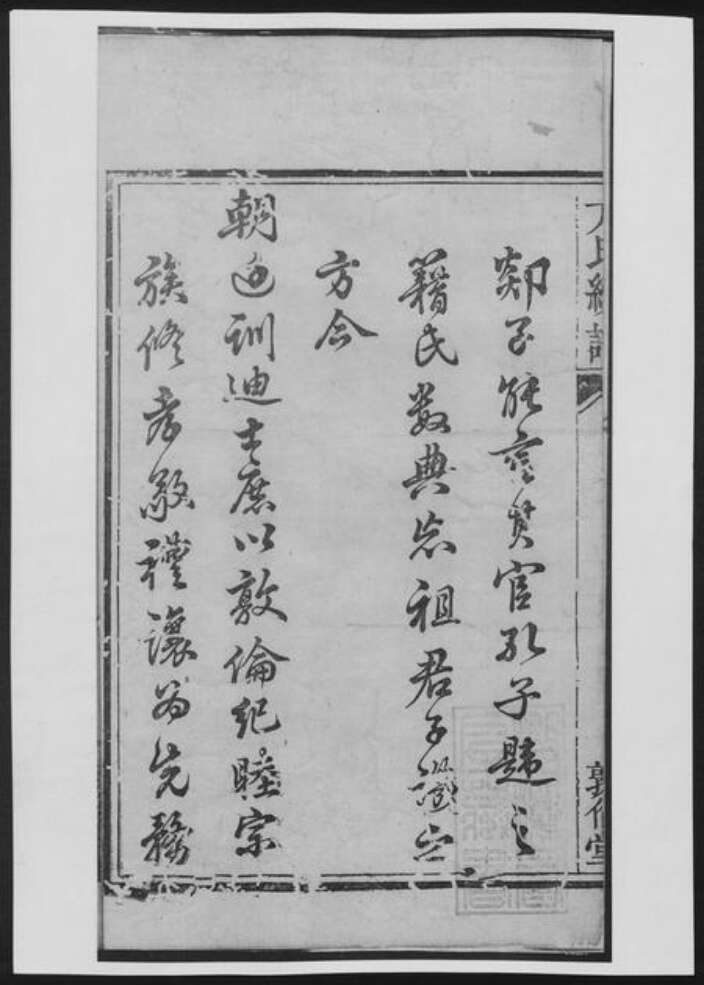 郯子能言其官孔子韙之
籍氏數典忘祖君子譏之
方今
朝廷訓迪士庶以敦倫紀睦宗
族修孝敬禮讓為先務